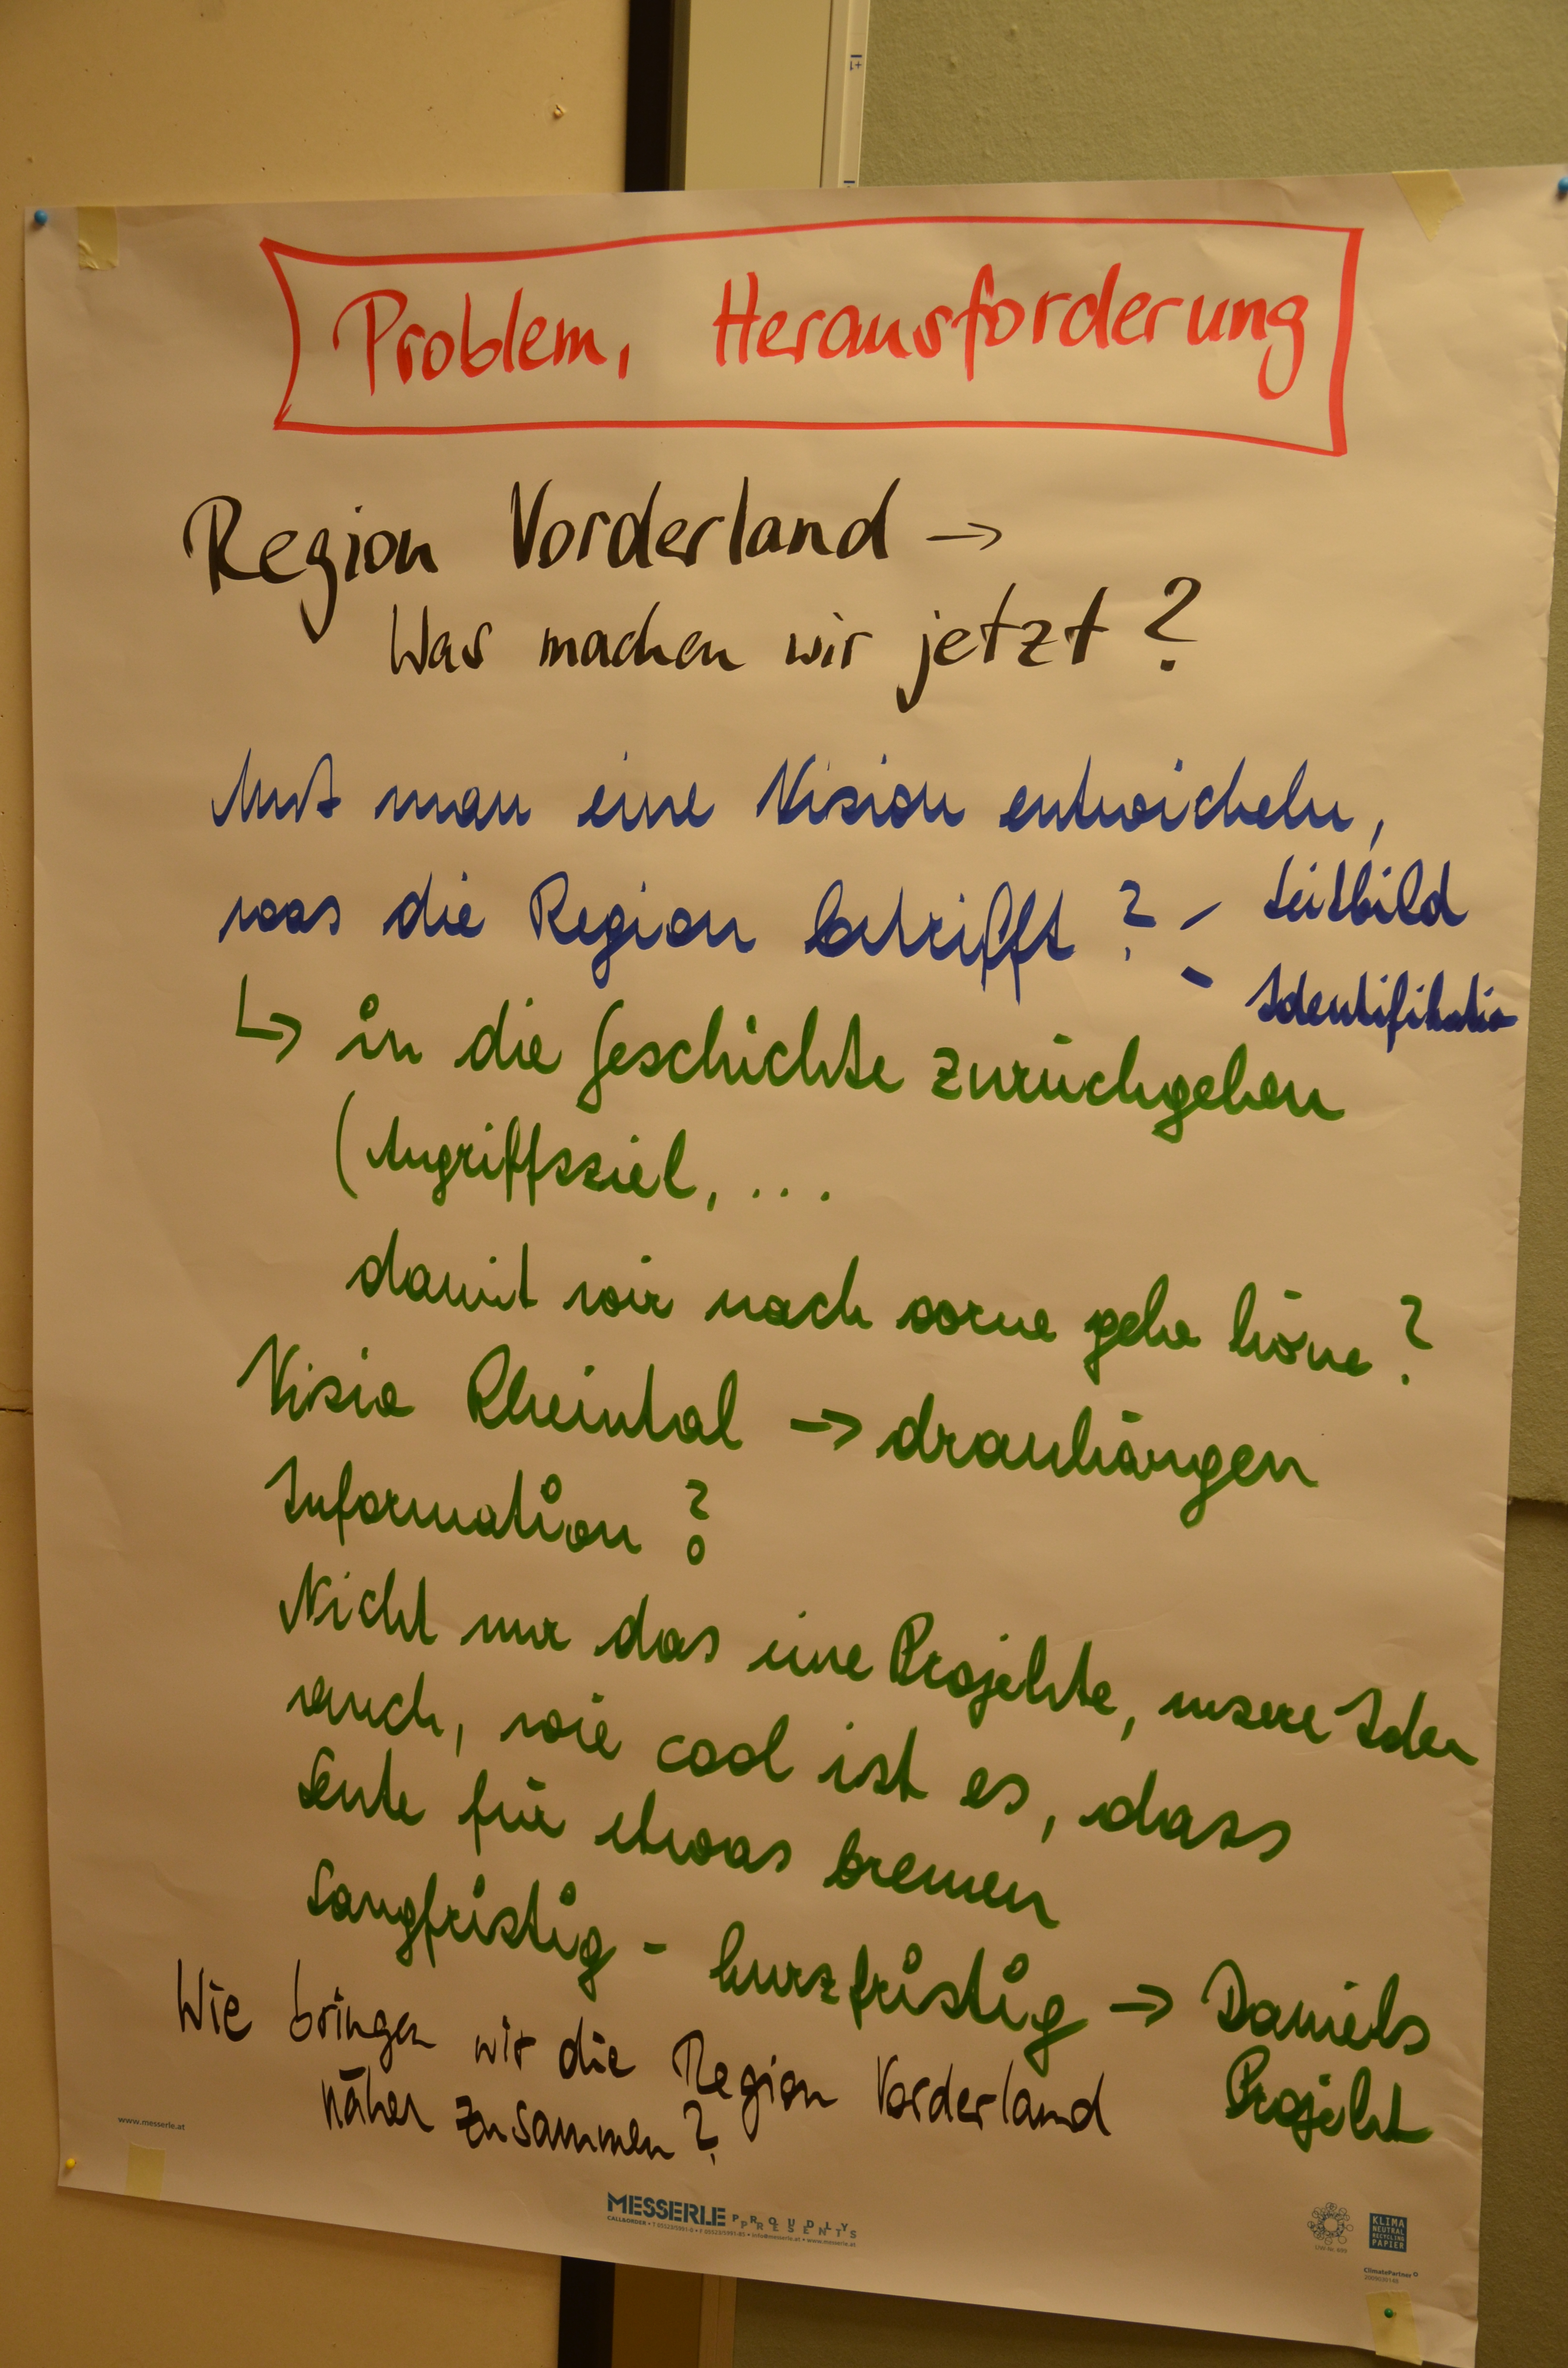 Problem, Herausforderung
Region Vorderland →
Was machen wir jetzt?
Muß man eine Vision entwickeln,
was die Region betrifft?
- Leitbild
- Identifikatio
↳ in die Geschichte zurückgehen
(Angriffsziel, ...
damit wir nach vorne gehe köne?
Visio Rheintal → dranhängen
Information?
Nicht nur das eine Projekte, unsere Iden
auch, wie cool ist es, dass
Leute für etwas brennen
Langfristig - kurzfristig → Daniels
Projekt
Wie bringen wir die Region Vorderland
näher zusammen?
www.messerle.at
MESSERLE PROUDLY PRESENTS
KLIMA NEUTRAL RECYCLING PAPIER
ClimatePartner